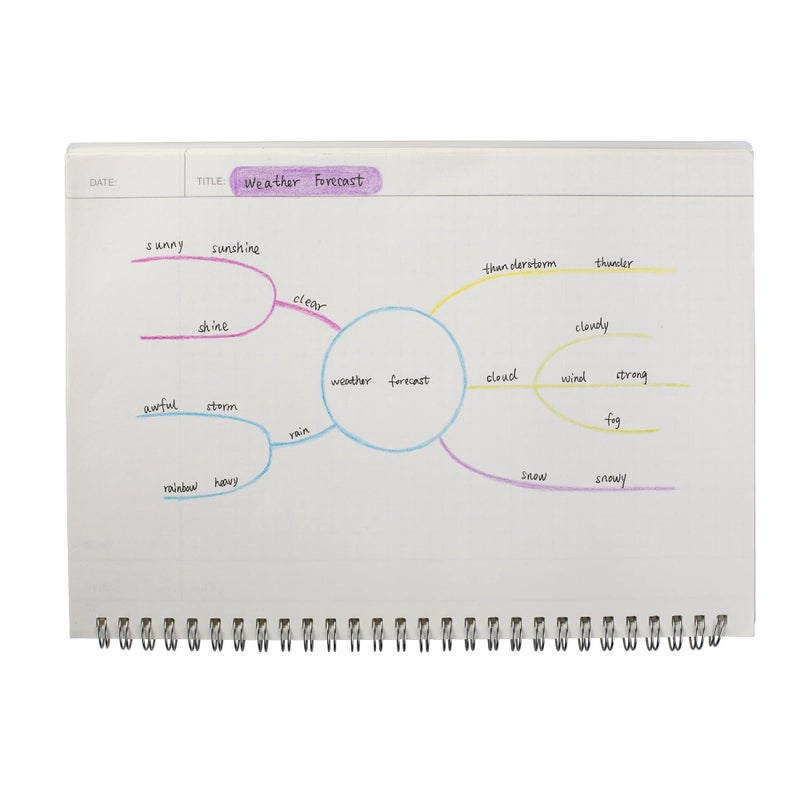 DATE:
TITLE: Weather Forecast
sunny sunshine
clear
shine
awful storm
rain
rainbow heavy
weather forecast
thunderstorm thunder
cloudy
cloud wind strong
fog
snow snowy